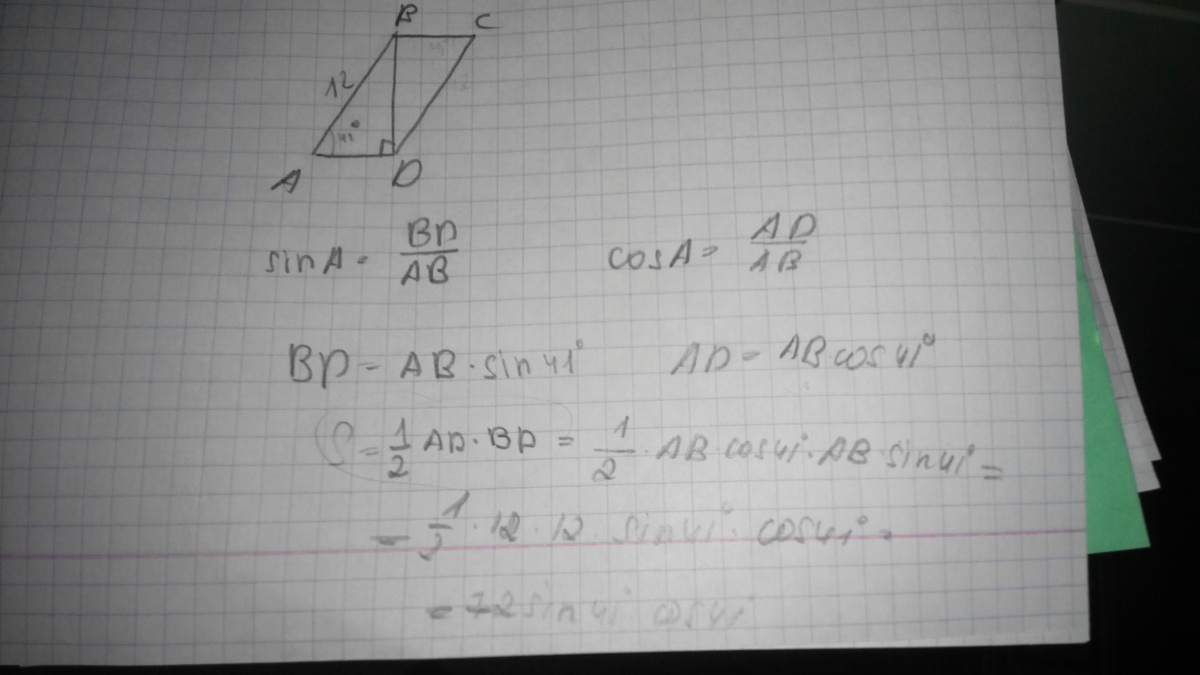 B C
12
41°
A D
sin A = BD/AB cos A = AD/AB
BD = AB · sin 41° AD = AB cos 41°
S = 1/2 AD · BD = 1/2 · AB cos 41° · AB sin 41° =
= 1/2 · 12 · 12 · sin 41° · cos 41° =
= 72 sin 41° cos 41°